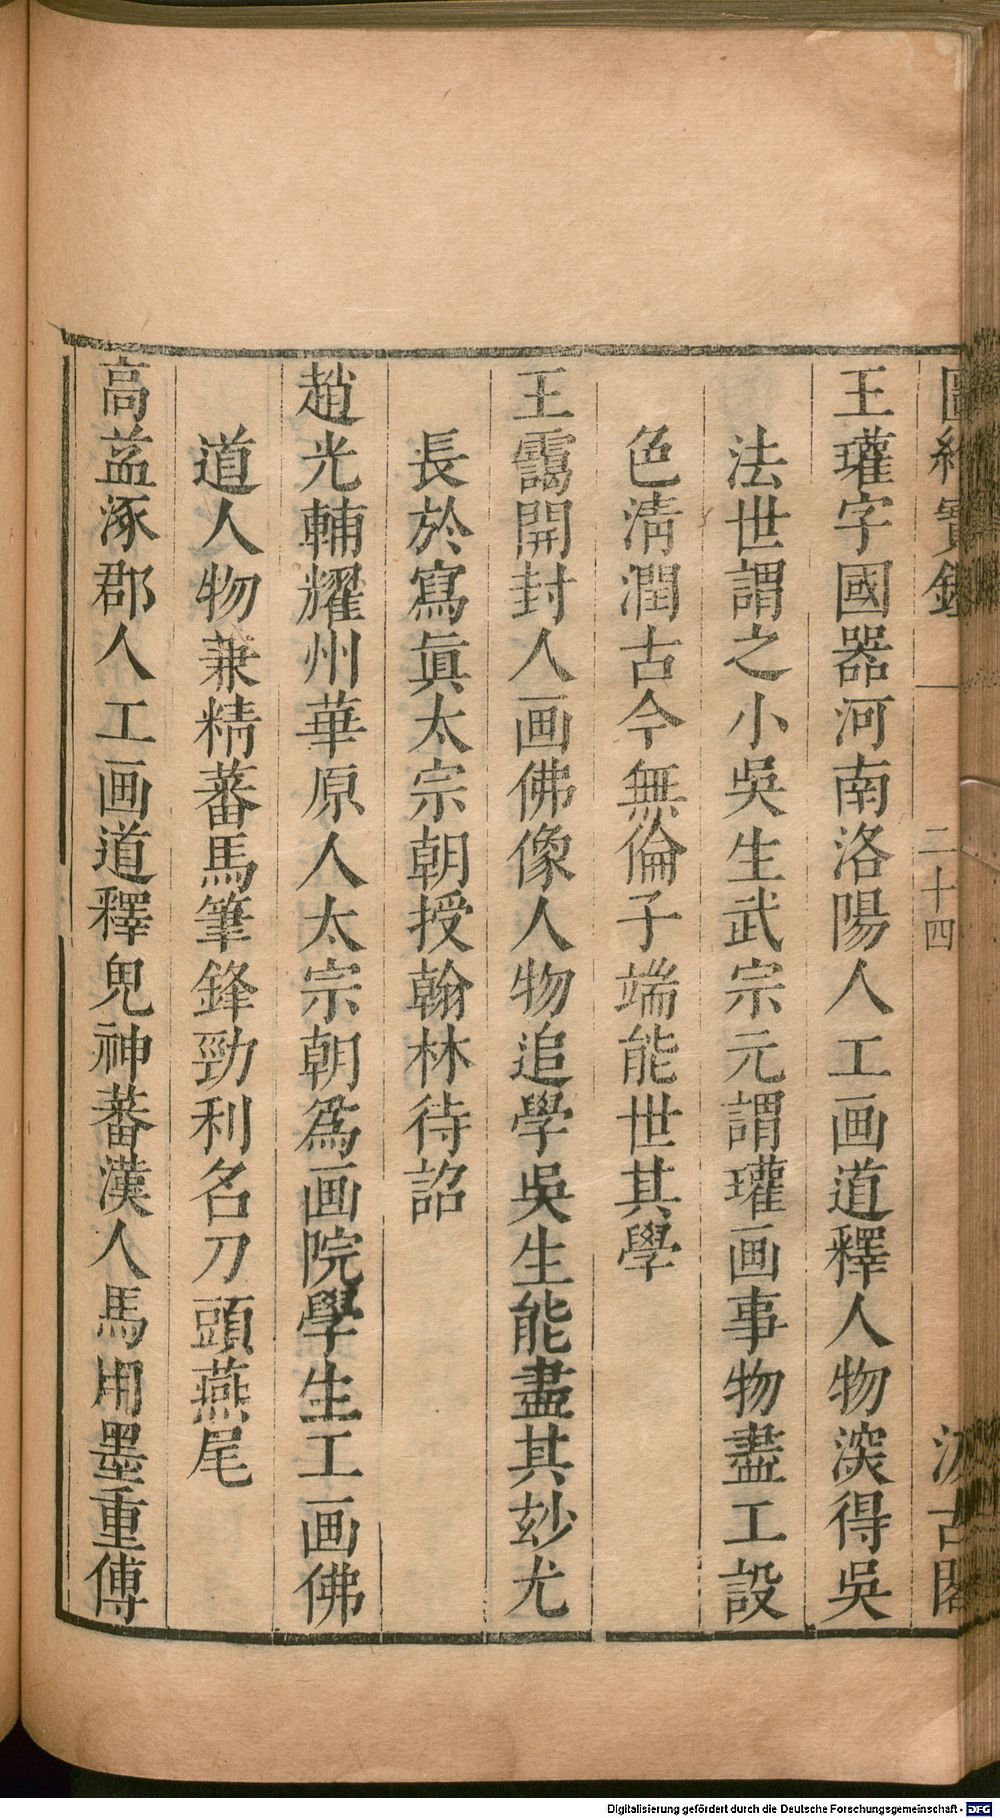 圖繪寶鑑 一 二十四 汲古閣
王瓘字國器河南洛陽人工画道釋人物深得吳
法世謂之小吳生武宗元謂瓘画事物盡工設
色清潤古今無倫子端能世其學
王靄開封人画佛像人物追學吳生能盡其玅尤
長於寫眞太宗朝授翰林待詔
趙光輔耀州華原人太宗朝爲画院學生工画佛
道人物兼精蕃馬筆鋒勁利名刀頭燕尾
高益涿郡人工画道釋鬼神蕃漢人馬用墨重傅
Digitalisierung gefördert durch die Deutsche Forschungsgemeinschaft - DFG